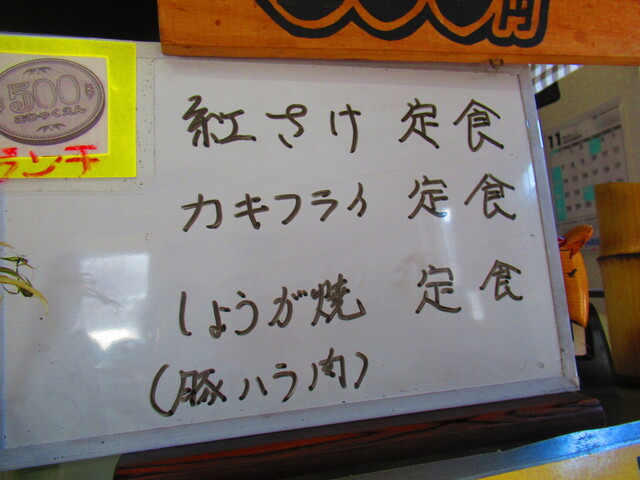 円
500
ごひゃくえん
ランチ
紅さけ 定食
カキフライ 定食
しょうが焼 定食
(豚ハラ肉)
11